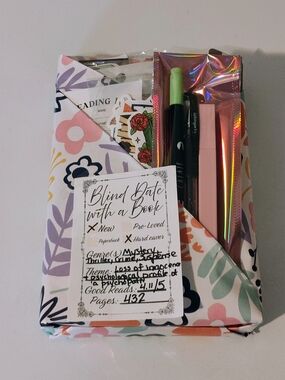 EADING
Blind Date
with a Book
X New Pre-Loved
Paperback X Hard cover
Genre(s): Mystery,
Thriller, Crime, Suspense
Theme: Loss of innocence
+ psychological profile of
a psychopath
Good Reads: 4.11/5
Pages: 432